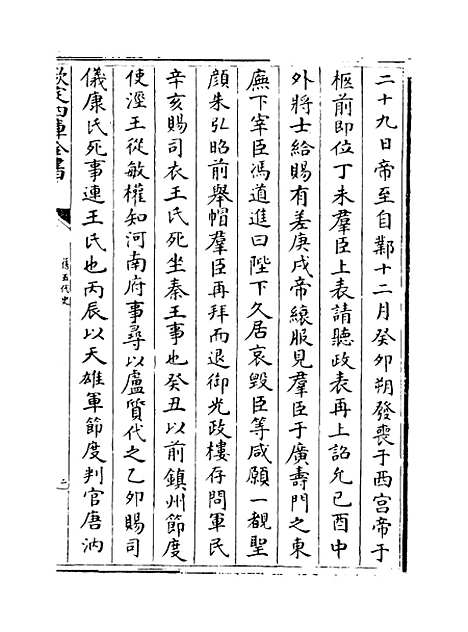 二十九日帝至自鄴十二月癸卯朔發喪于西宮帝于
柩前即位丁未羣臣上表請聽政表再上詔允己酉中
外將士給賜有差庚戌帝縗服見羣臣于廣壽門之東
廡下宰臣馮道進曰陛下久居哀毀臣等咸願一覩聖
顔朱弘昭前舉帽羣臣再拜而退御光政樓存問軍民
辛亥賜司衣王氏死坐秦王事也癸丑以前鎮州節度
使涇王從敏權知河南府事尋以盧質代之乙卯賜司
儀康氏死事連王氏也丙辰以天雄軍節度判官唐汭
欽定四庫全書
舊五代史
二